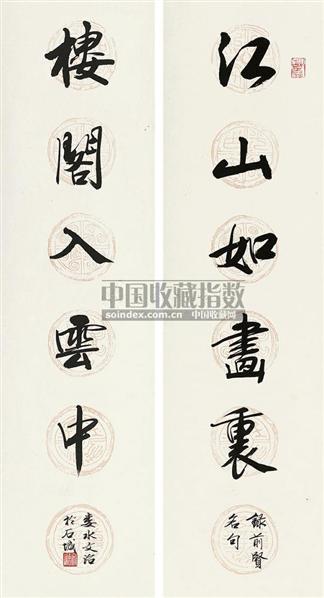 江山如畫裏
錄前賢
名句
樓閣入雲中
婁水文治
於石城
中国收藏指数
soindex.com.cn